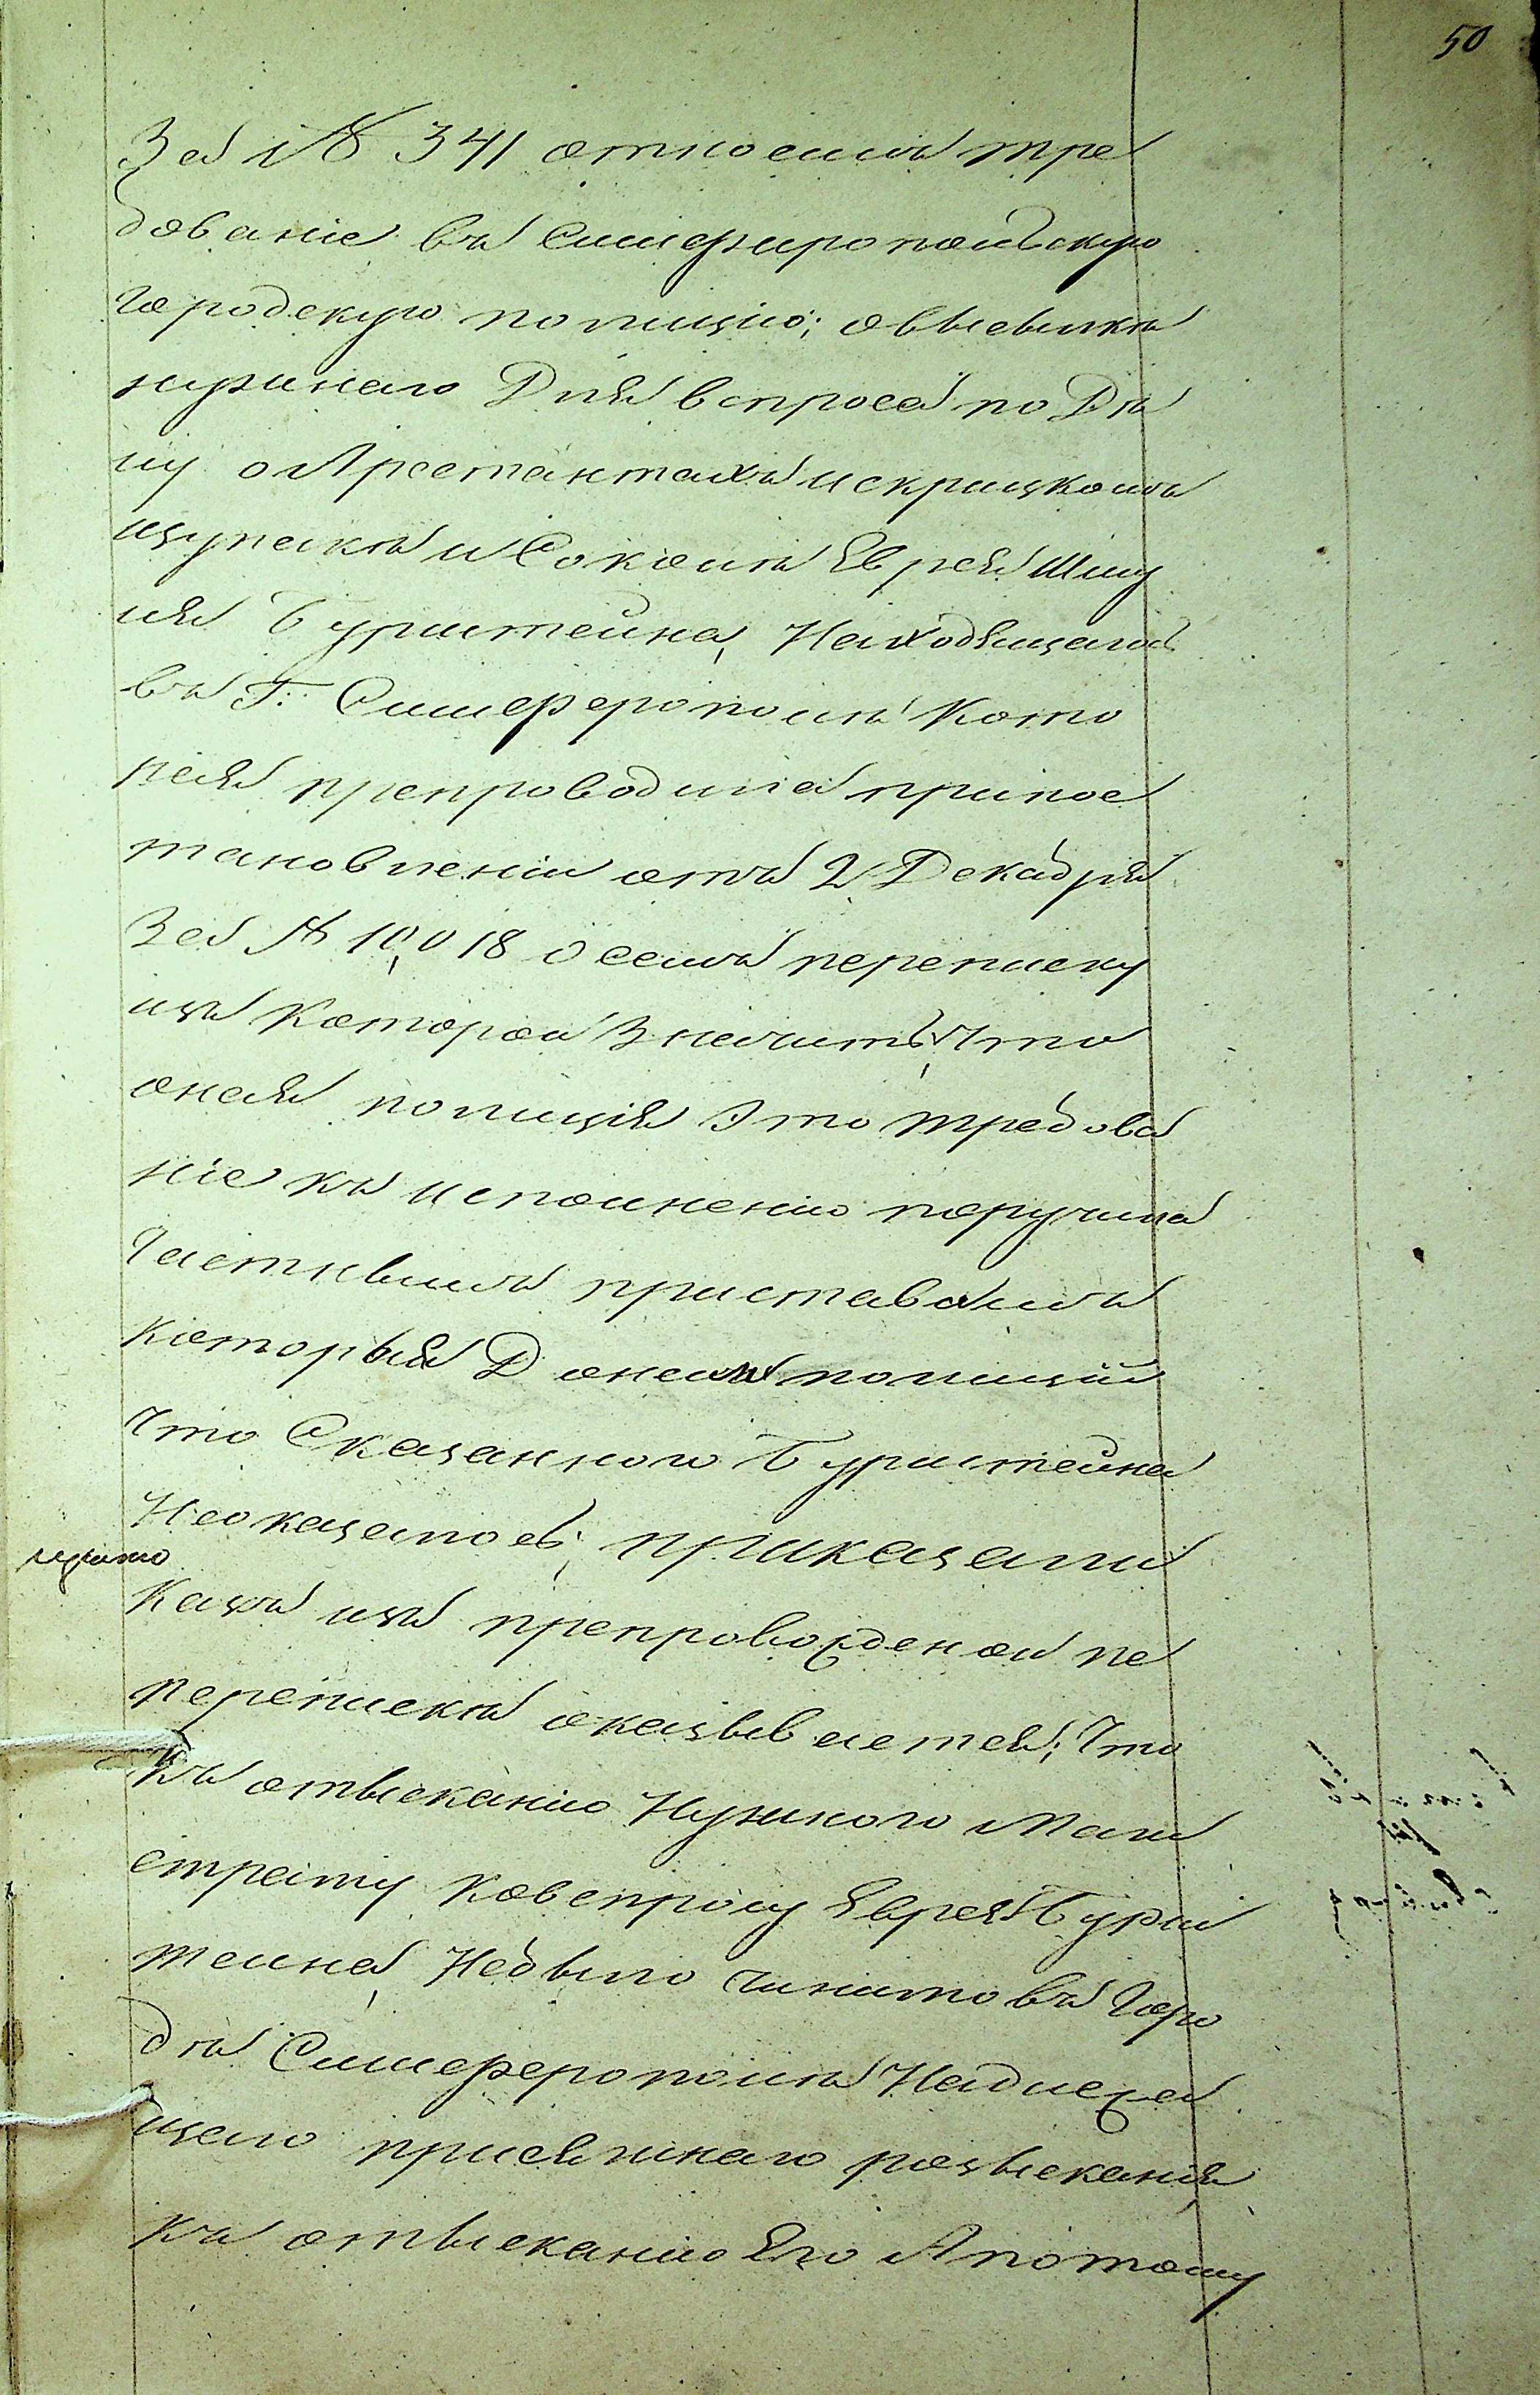 50
За № 341 отнесшись тре
бованіе въ Симферопольскую
Городскую полицію; о высылкѣ
нужнаго Для вспроса по Дѣ
лу о Арестантахъ Искрицкомъ
и Соколѣ Еврея Шму
ля Бурштейна, Находящагось
въ Г: Симферополѣ Кото
рая препроводила при пос
тановленіи отъ 2 Декабря
За № 10,018 о семъ переписку
изъ Которой Значитъ, Что
оная полиція Это требова
ніе къ исполненію поручила
Частнымъ приставамъ
Которыя Донесли полиціи
Что Сказанного Бурштейна
Неоказалось; приказали
Какъ изъ препровожденой пе
переписки оказывается; Что
Къ отысканію Нужного Маги
страту Ковспросу Еврея Бурш
тейна, Небыло чинимо въ Горо
дѣ Симферополѣ Надлежа
щаго розысканія
къ отысканію Его Апотому